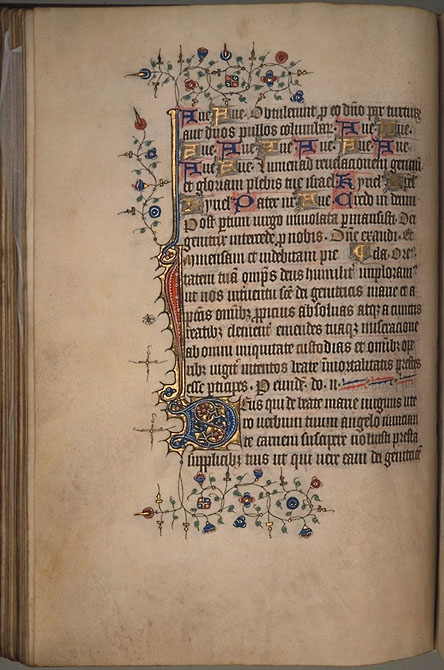 Aue Aue. Obtulerunt p eo dno par turturu
aut duos pullos columbar. Aue Aue.
Aue Aue Aue Aue Aue Aue
Aue Aue. Lumen ad reuelacionem gentiu
et gloriam plebis tue israel. Kyriel. Xpel.
Kyriel. Pater nr. Aue. Credo in deum
Post ptum uirgo inuiolata pmansisti. Dei
genitrix intercede p nobis. Dne exaudi. Et
Immensam et indebitam pie Ore
tatem tua omps deus humilit imploram
ut nos intuentu sce dei genitricis marie et a
pcis omibz ppicius absoluas atqz a cunctis
reatibz clement emendes tuaqz miseracione
ab omni iniquitate custodias et omibz
uigre intentos beate inmortalitatis prestes
esse pticipes. P eunde. do. n.
Deus qui de beate marie uirginis ute
ro uerbum tuum angelo nuncian
te carnem suscipere uoluisti presta
supplicibz tuis ut qui uere eam dei genitrice